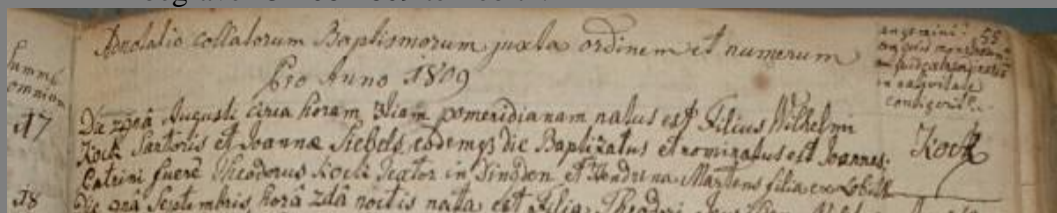 Annotatio collatorum Baptismorum juxta ordinem et numerum
Pro Anno 1809
55
an gemini?
in nativitate
contigerit?
summa
omnium
17
Die 29nâ Augusti circa horam 3tiam pomeridianam natus est Filius Wilhelmi
Kock Sartoris et Joannæ Siebels, eodemq3 die Baptizatus et nominatus est Joannes.
Patrini fuere Theodorus Kock Textor in Dingden et Hendrina Martens filia ex
Kock
18
Die 2nda Septembris, horâ 2dâ noctis nata est Filia Theodori